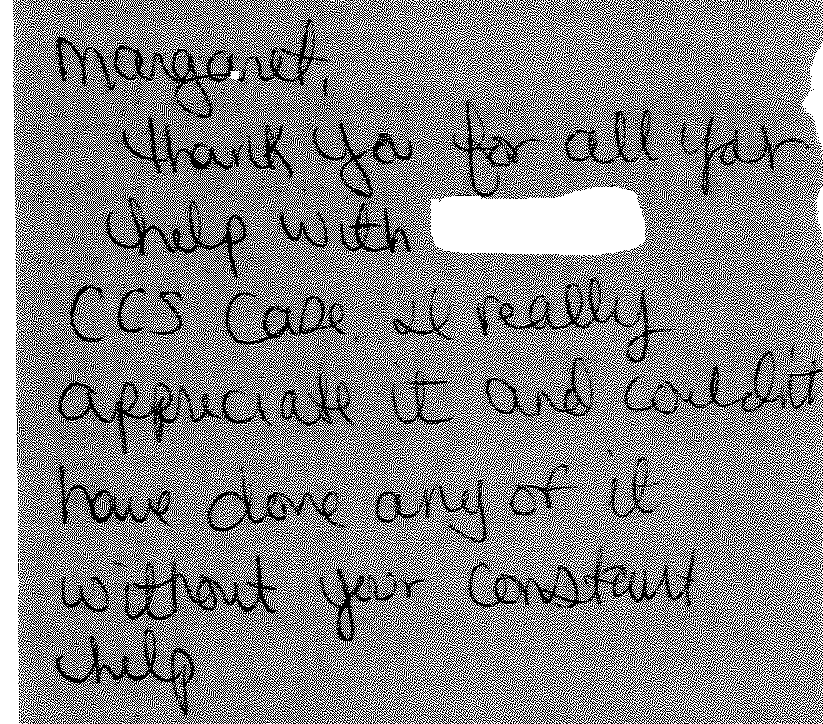 Margaret,
thank you for all your
help with
CCS case I really
appreciate it and couldn't
have done any of it
without your constant
help